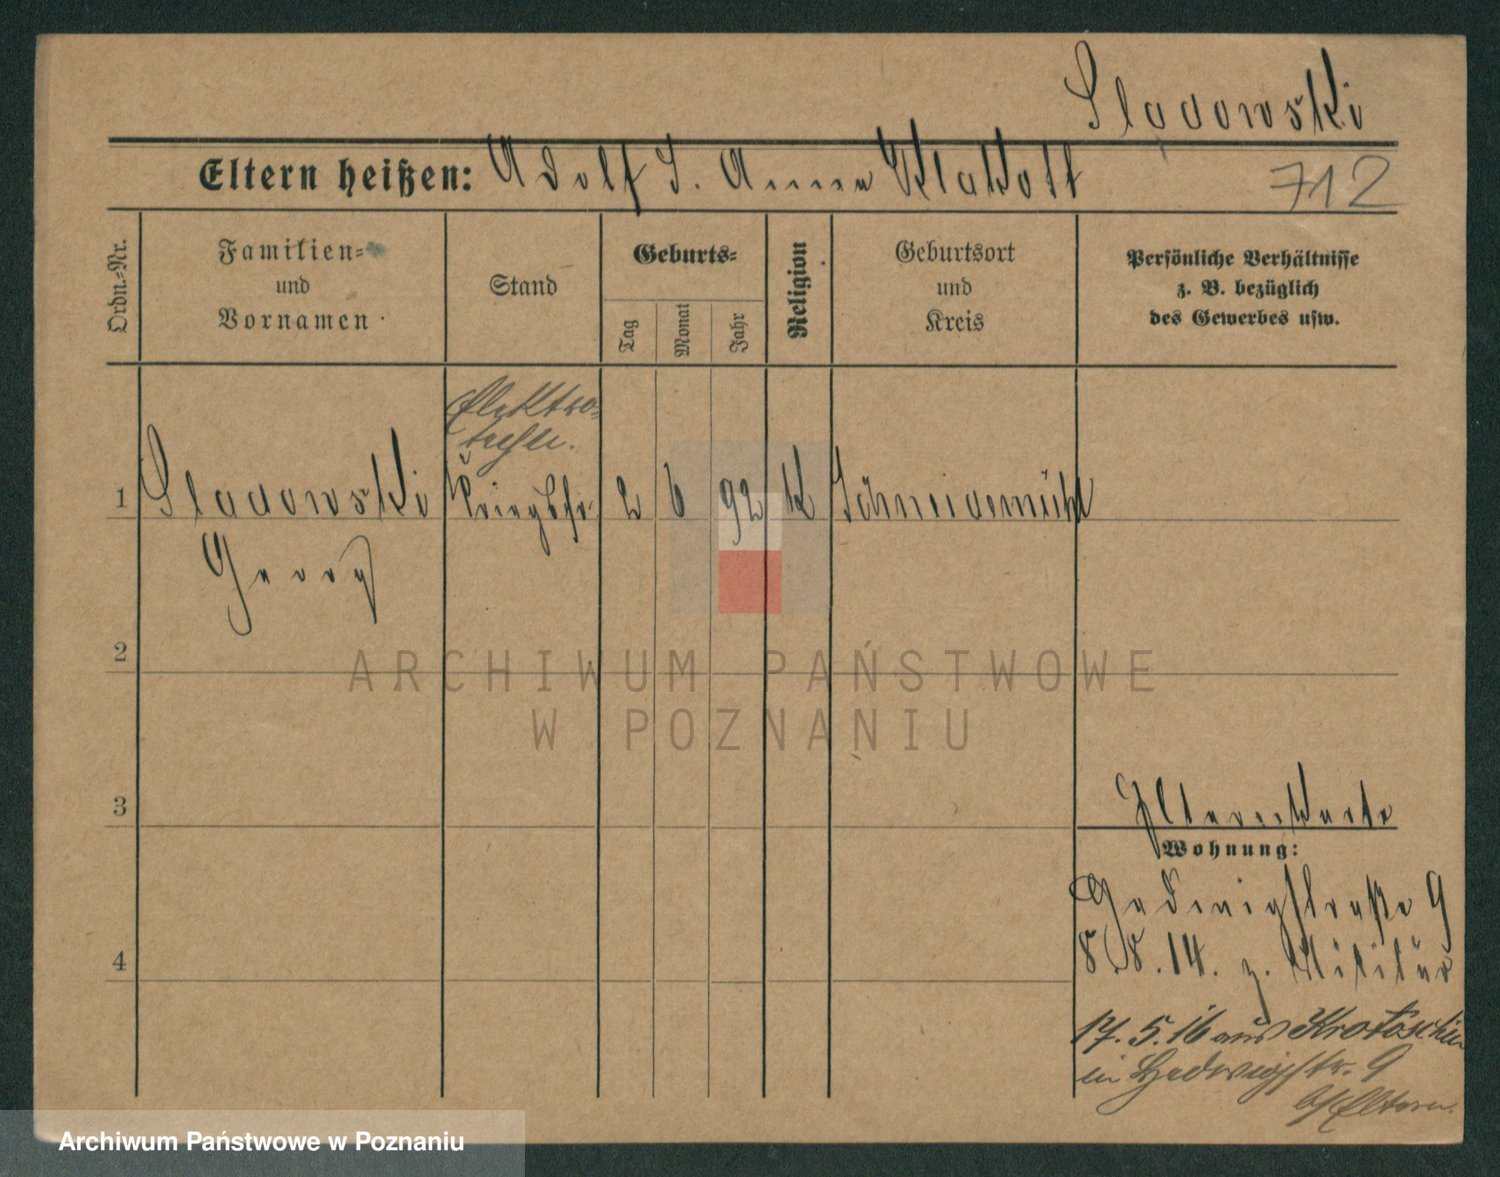 Sladowski
Eltern heißen: Adolf S. Anna
712
Ordn.-Nr.
Familien-
und
Vornamen
Stand
Geburts-
Tag
Monat
Jahr
Religion
Geburtsort
und
Kreis
Persönliche Verhältnisse
z. B. bezüglich
des Gewerbes usw.
Elektro-
techn.
1 Sladowski 2 6 92 K Schneidemühl
Georg
2
3
4
Elternkarte
Wohnung:
Hedwigstraße 9
8.8.14. z. Militär
17.5.16 aus Krotoschin
in Hedwigstr. 9
b/Eltern.
ARCHIWUM PAŃSTWOWE
W POZNANIU
Archiwum Państwowe w Poznaniu